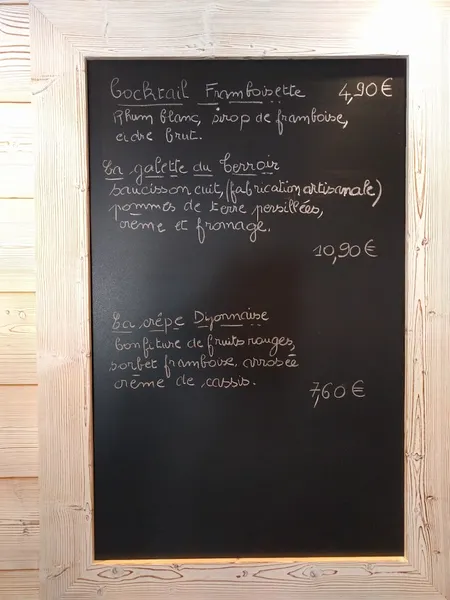 Cocktail Framboisette 4,90€
Rhum blanc, sirop de framboise,
cidre brut.
La galette du Terroir
saucisson cuit, (fabrication artisanale)
pommes de terre persillées,
crème et fromage.
10,90€
La crêpe Dijonnaise
Confiture de fruits rouges,
sorbet framboise, arrosée
crème de cassis.
7,60€